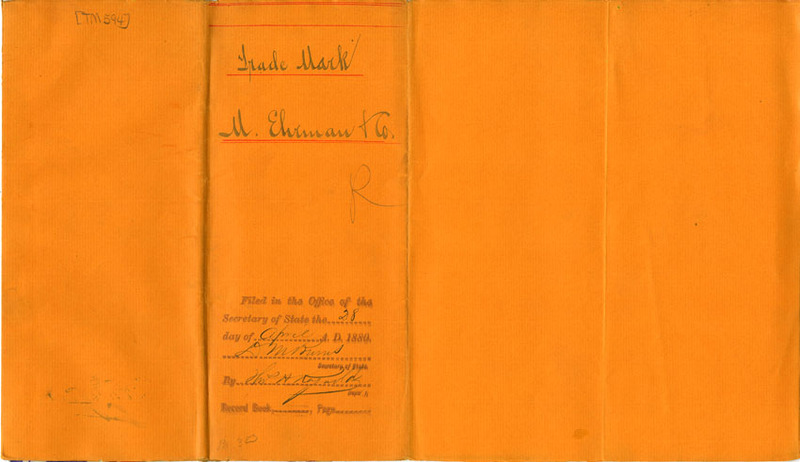 [TM 594]
Trade Mark
M. Ehrman & Co.
R
Filed in the Office of the
Secretary of State the 28
day of April A. D. 1880.
D M Burns
Secretary of State.
By
Deputy
Record Book, Page